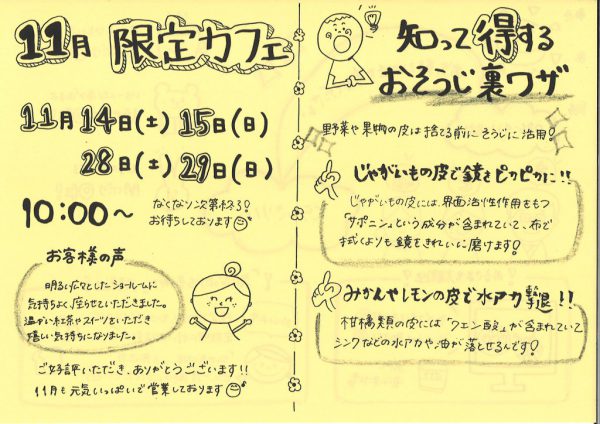 11月 限定カフェ
11月14日(土) 15日(日)
28日(土) 29日(日)
10:00～
なくなり次第終了!
お待ちしております
お客様の声
明るい広々としたショールームに
気持ちよく座らせていただきました。
温かい紅茶やスイーツをいただき
嬉しい気持ちになりました。
ご好評いただき、ありがとうございます!!
11月も元気いっぱいで営業しております
知って得する
おそうじ裏ワザ
野菜や果物の皮は捨てる前にそうじに活用!
じゃがいもの皮で鏡をピカピカに!!
じゃがいもの皮には、界面活性作用をもつ
「サポニン」という成分が含まれていて、布で
拭くよりも鏡をきれいに磨けます!
みかんやレモンの皮で水アカ撃退!!
柑橘類の皮には「クエン酸」が含まれていて
シンクなどの水アカや油が落とせるんです!